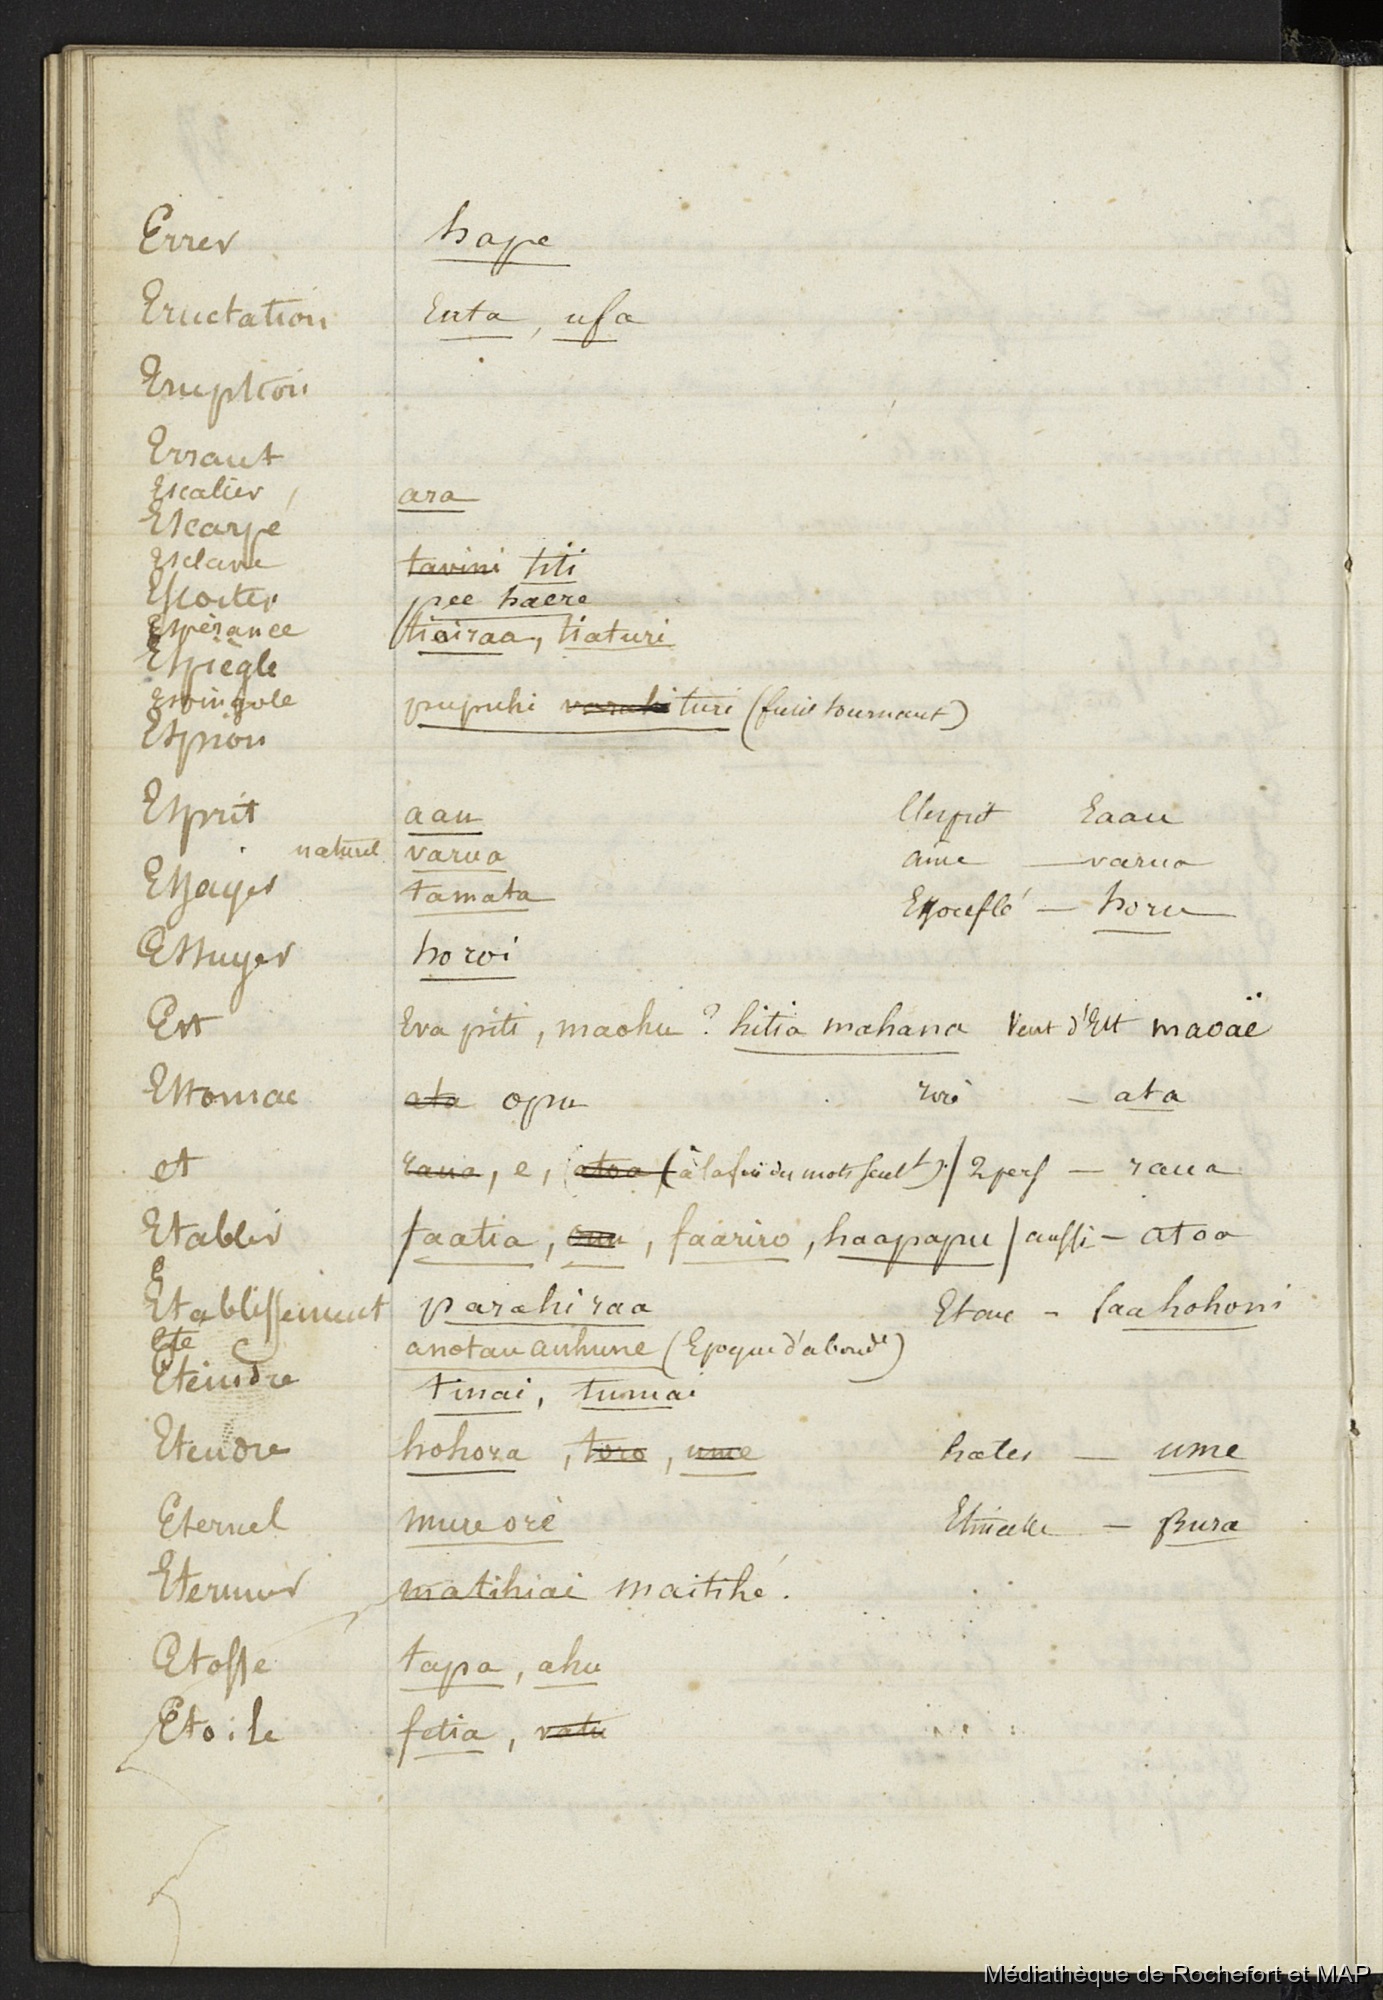 Errer hape
Eructation Euta, ufa
Eruption
Errant
Escalier ara
Escarpé
Esclave tavini titi
Escorter pee haere
Espérance tiairaa, tiaturi
Espiègle
Espingole pupuhi turi (fusil tournant)
Espion
Esprit aau L'esprit Eaau
naturel varua âme — varua
Essayer tamata Essouflé — horu
Essuyer horoi
Est Era piti, maohu ? hitia mahana Vent d'Est maoaë
Estomac ata opu — ata
et raua, e, atoa (à la fin du mots seult) / 2 pers — raua
Etabler faatia, , faariro, haapapu / aussi — atoa
Etablissement parahiraa Etaue - faahohoni
Ete anotau auhune (Epoque d'abondce)
Eteindre tinai, tumai
Etendre hohora, toro, ume hater — ume
Eternel mure ore Etincelle — pura
Eternuer matihiai maitihé.
Etoffe tapa, ahu
Etoile fetia, vatu
Médiathèque de Rochefort et MAP